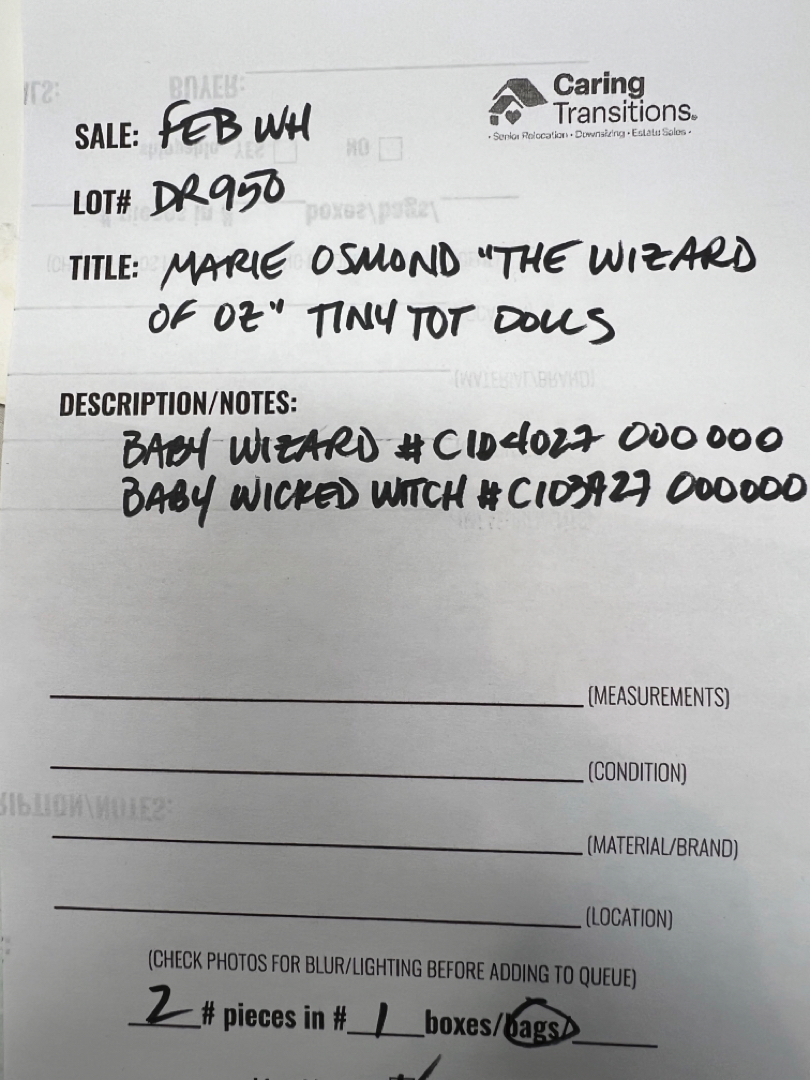 Caring
Transitions®
• Senior Relocation • Downsizing • Estate Sales •
SALE: FEB WH
LOT# DR950
TITLE: MARIE OSMOND "THE WIZARD
OF OZ" TINY TOT DOLLS
DESCRIPTION/NOTES:
BABY WIZARD #C1D4027 000000
BABY WICKED WITCH #C1D3927 000000
(MEASUREMENTS)
(CONDITION)
(MATERIAL/BRAND)
(LOCATION)
(CHECK PHOTOS FOR BLUR/LIGHTING BEFORE ADDING TO QUEUE)
2 # pieces in # 1 boxes/bags/